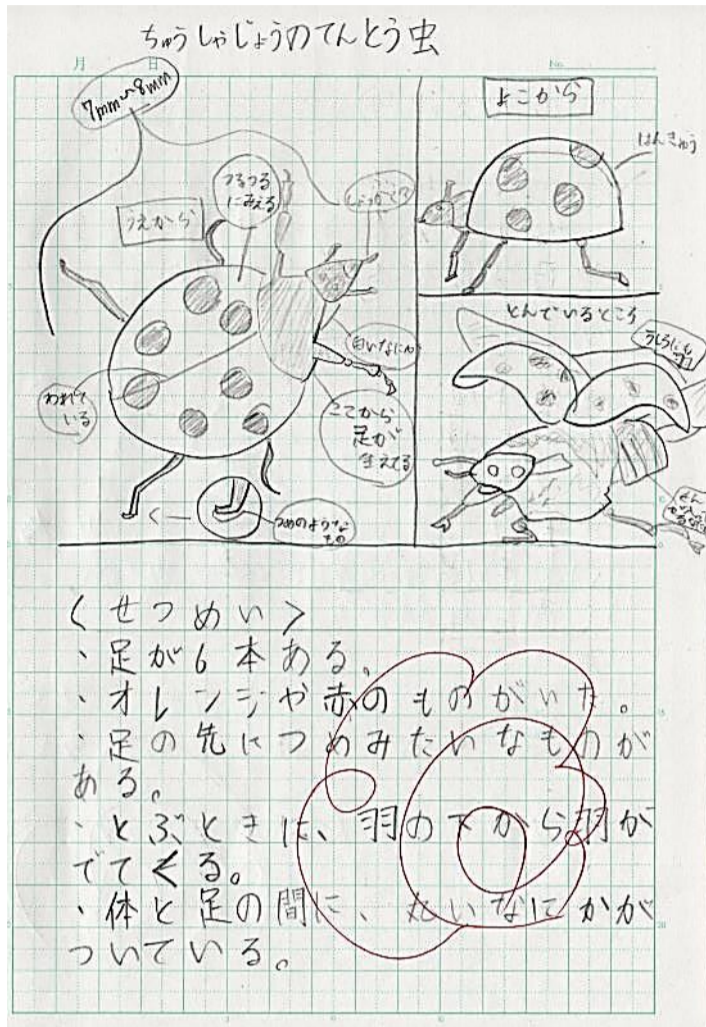 ちゅうしゃじょうのてんとう虫
月 日
No.
7mm〜8mm
うえから
つるつる
にみえる
しょっかく?
白いなにか
われて
いる
ここから
足が
生えてる
つめのような
もの
よこから
はんきゅう
とんでいるところ
うしろにも
〈せつめい〉
・足が6本ある。
・オレンジや赤のものがいた。
・足の先につめみたいなものが
ある。
・とぶときは、羽の下から羽が
でてくる。
・体と足の間に、丸いなにかが
ついている。